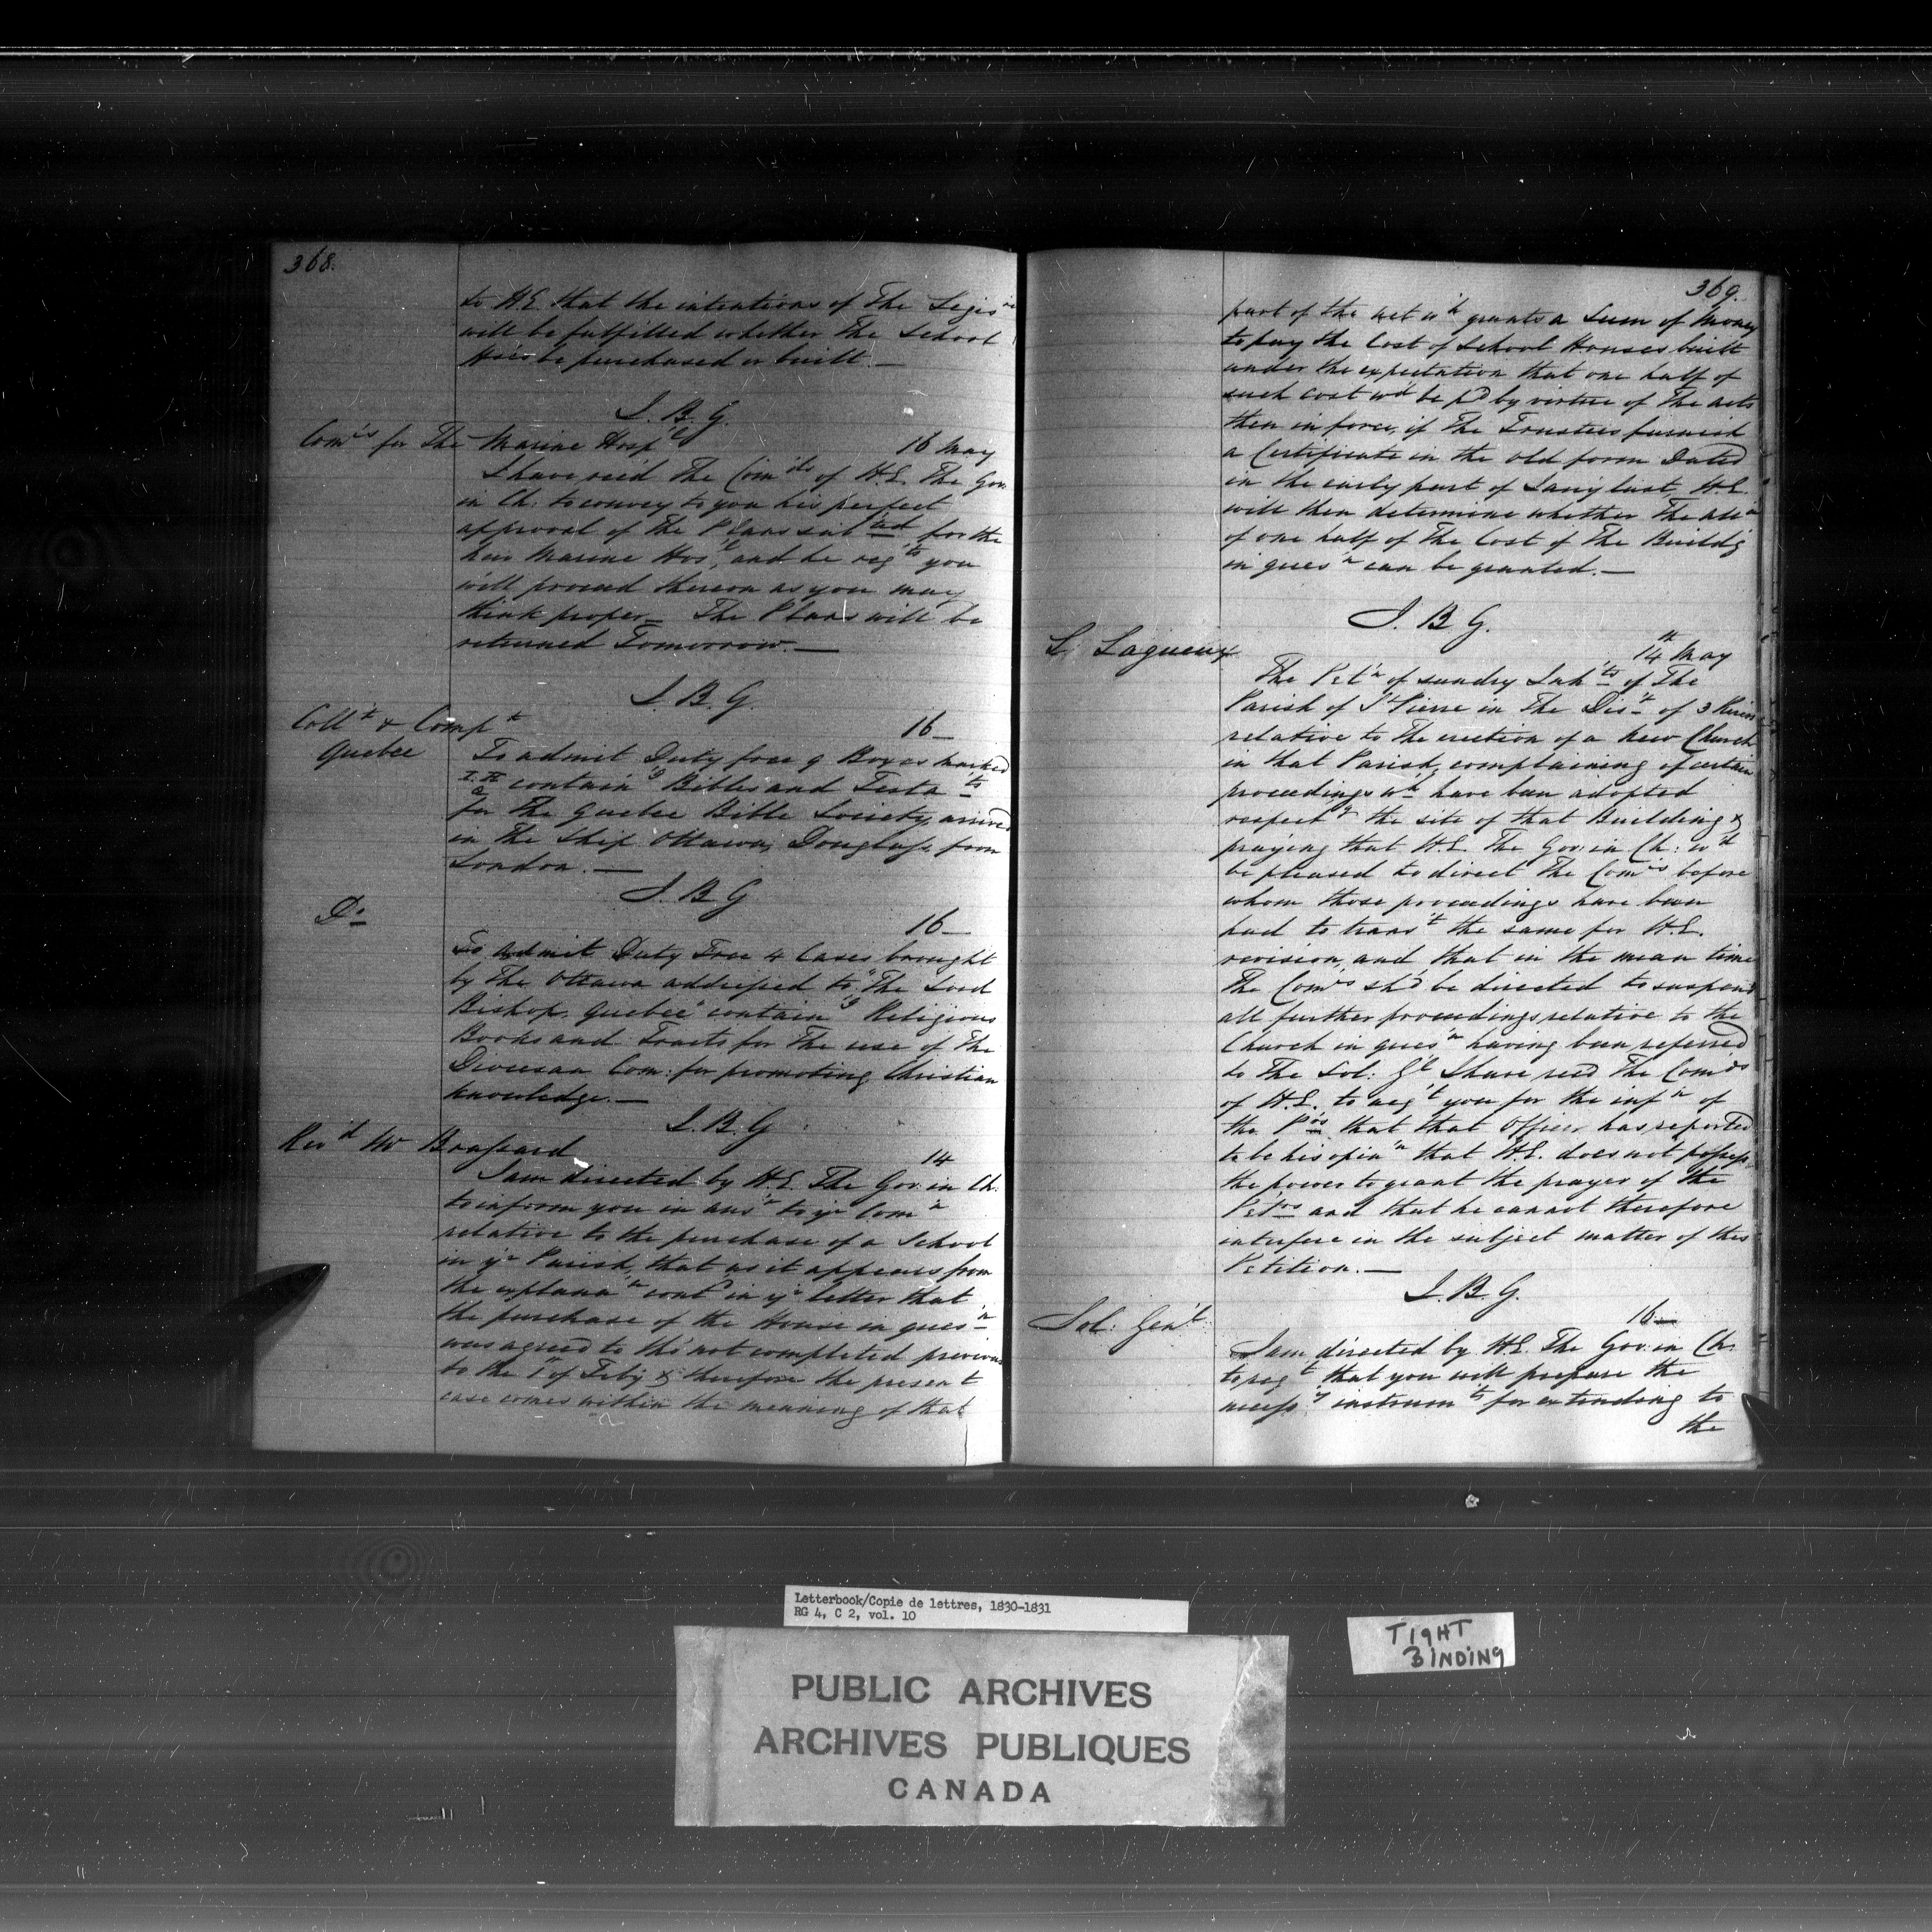 368.
to H.E. that the intentions of The Legis re
will be fulfilled whether The School
Ho'es be purchased or built.—
J. B. G.
Com rs for The Marine Hosp l
16 May
I have rec'd The Com ds of H.E. The Gov
in Ch: to convey to you his perfect
approval of The Plans sub ted for the
new Marine Hos l, and he req ts you
will proceed thereon as you may
think proper— The Plans will be
returned Tomorrow.—
J. B. G.
Coll r & Comp r
Quebec
16—
To admit Duty free 9 Boxes marked
contain g Bibles and Testa ts
for The Quebec Bible Society, arrived
in the Ship Ottawa, Douglass, from
London.—
J. B. G
Do
16—
To admit Duty Free 4 Cases brought
by the Ottawa addressed to "The Lord
Bishop, Quebec" contain g Religious
Books and Tracts for The use of The
Diocesan Com: for promoting Christian
knowledge.—
J. B. G.
Rev d Mr Brassard
14
I am directed by H.E. The Gov: in Ch:
to inform you in ans r to yr Com n
relative to the purchase of a School
in yr Parish, that as it appears from
the explana n cont d in yr letter that
the purchase of the House in ques n
was agreed to tho' not completed previous
to the 1st of Feb'y & therefore the present
case comes within the meaning of that
369.
part of the act w h grants a Sum of Money
to pay the Cost of School Houses built
under the expectation that one half of
such cost w d be p d by virtue of The Acts
then in force, if The Trustees furnish
a Certificate in the old form Dated
in the early part of Jan'y last H.E.
will then determine whether The
of one half of The Cost of The Build g
in ques n can be granted.—
J. B G.
L. Lagueux
14th May
The Pet n of sundry Inh ts of The
Parish of St Pierre in The Dis t of 3 Rivers
relative to The erection of a New Church
in that Parish, complaining of certain
proceedings w h have been adopted
respect g the site of that Building &
praying that H.E. The Gov: in Ch: w d
be pleased to direct The Com rs before
whom those proceedings have been
had to trans t the same for H.E.
revision, and that in the mean time
The Com rs sh d be directed to suspend
all further proceedings relative to the
Church in ques n having been referred
to The Sol: G l I have rec'd The Com ds
of H.E. to acq t you for the inf n of
the P rs that that Officer has reported
to be his opin n that H.E. does not possess
the power to grant the prayer of the
Pet rs and that he cannot therefore
interfere in the subject matter of this
Petition.—
J. B. G.
Sol: Gen'l
16—
I am directed by H.E. The Gov: in Ch:
to req t that you will prepare the
necess y instrum ts for extending to
the
Letterbook/Copie de lettres, 1830-1831
RG 4, C 2, vol. 10
TIGHT
BINDING
PUBLIC ARCHIVES
ARCHIVES PUBLIQUES
CANADA